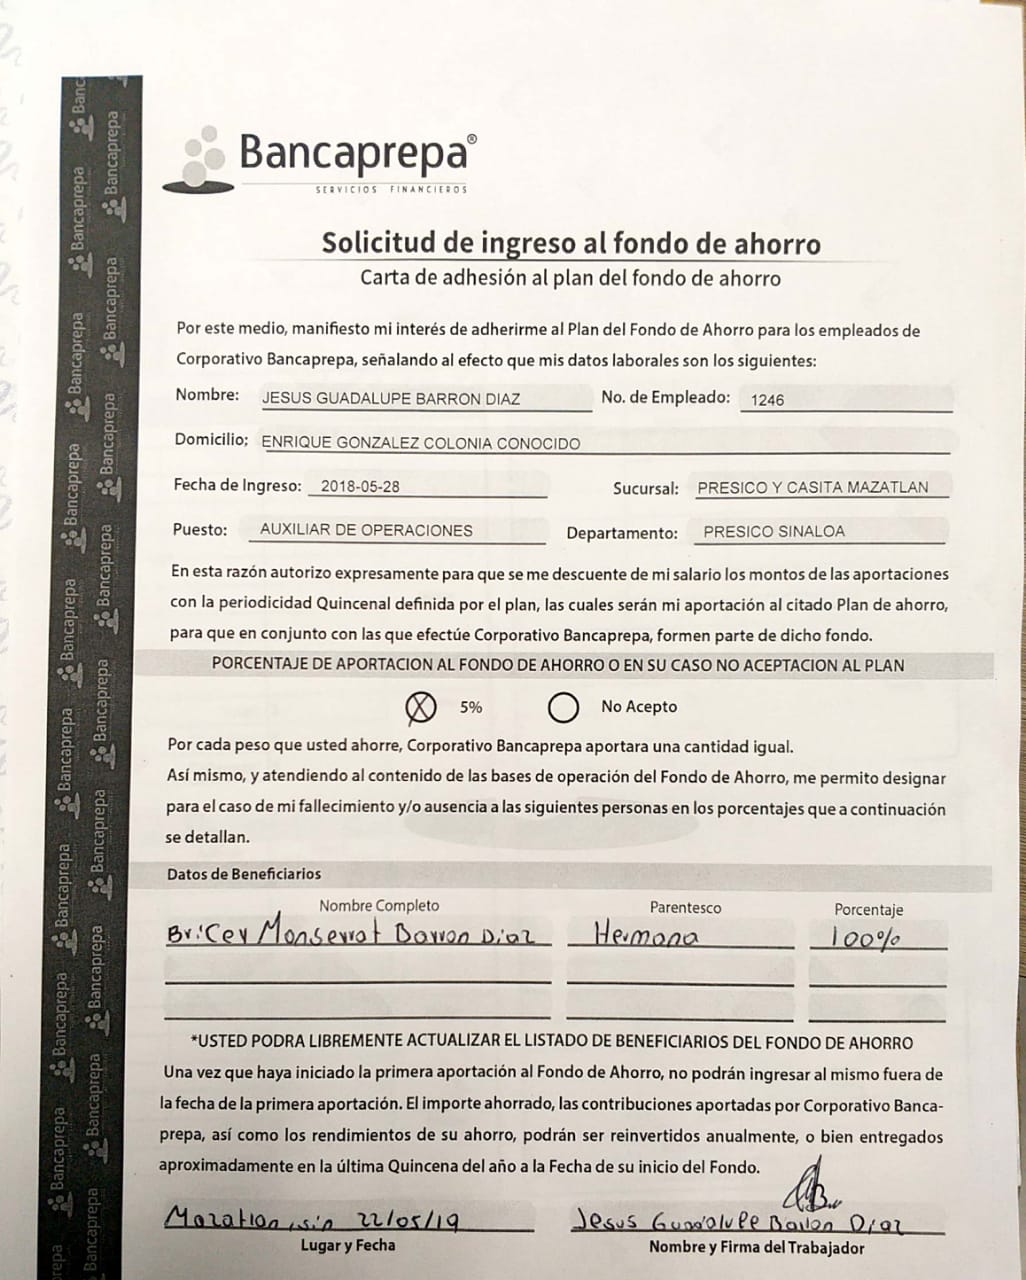 Bancaprepa®
SERVICIOS FINANCIEROS
Solicitud de ingreso al fondo de ahorro
Carta de adhesión al plan del fondo de ahorro
Por este medio, manifiesto mi interés de adherirme al Plan del Fondo de Ahorro para los empleados de
Corporativo Bancaprepa, señalando al efecto que mis datos laborales son los siguientes:
Nombre: JESUS GUADALUPE BARRON DIAZ No. de Empleado: 1246
Domicilio: ENRIQUE GONZALEZ COLONIA CONOCIDO
Fecha de Ingreso: 2018-05-28 Sucursal: PRESICO Y CASITA MAZATLAN
Puesto: AUXILIAR DE OPERACIONES Departamento: PRESICO SINALOA
En esta razón autorizo expresamente para que se me descuente de mi salario los montos de las aportaciones
con la periodicidad Quincenal definida por el plan, las cuales serán mi aportación al citado Plan de ahorro,
para que en conjunto con las que efectúe Corporativo Bancaprepa, formen parte de dicho fondo.
PORCENTAJE DE APORTACION AL FONDO DE AHORRO O EN SU CASO NO ACEPTACION AL PLAN
X 5% No Acepto
Por cada peso que usted ahorre, Corporativo Bancaprepa aportara una cantidad igual.
Así mismo, y atendiendo al contenido de las bases de operación del Fondo de Ahorro, me permito designar
para el caso de mi fallecimiento y/o ausencia a las siguientes personas en los porcentajes que a continuación
se detallan.
Datos de Beneficiarios
Nombre Completo Parentesco Porcentaje
Bricey Monserrat Barron Diaz Hermana 100%
*USTED PODRA LIBREMENTE ACTUALIZAR EL LISTADO DE BENEFICIARIOS DEL FONDO DE AHORRO
Una vez que haya iniciado la primera aportación al Fondo de Ahorro, no podrán ingresar al mismo fuera de
la fecha de la primera aportación. El importe ahorrado, las contribuciones aportadas por Corporativo Banca-
prepa, así como los rendimientos de su ahorro, podrán ser reinvertidos anualmente, o bien entregados
aproximadamente en la última Quincena del año a la Fecha de su inicio del Fondo.
Mazatlan, sin 22/05/19 Jesus Guadalupe Barron Diaz
Lugar y Fecha Nombre y Firma del Trabajador